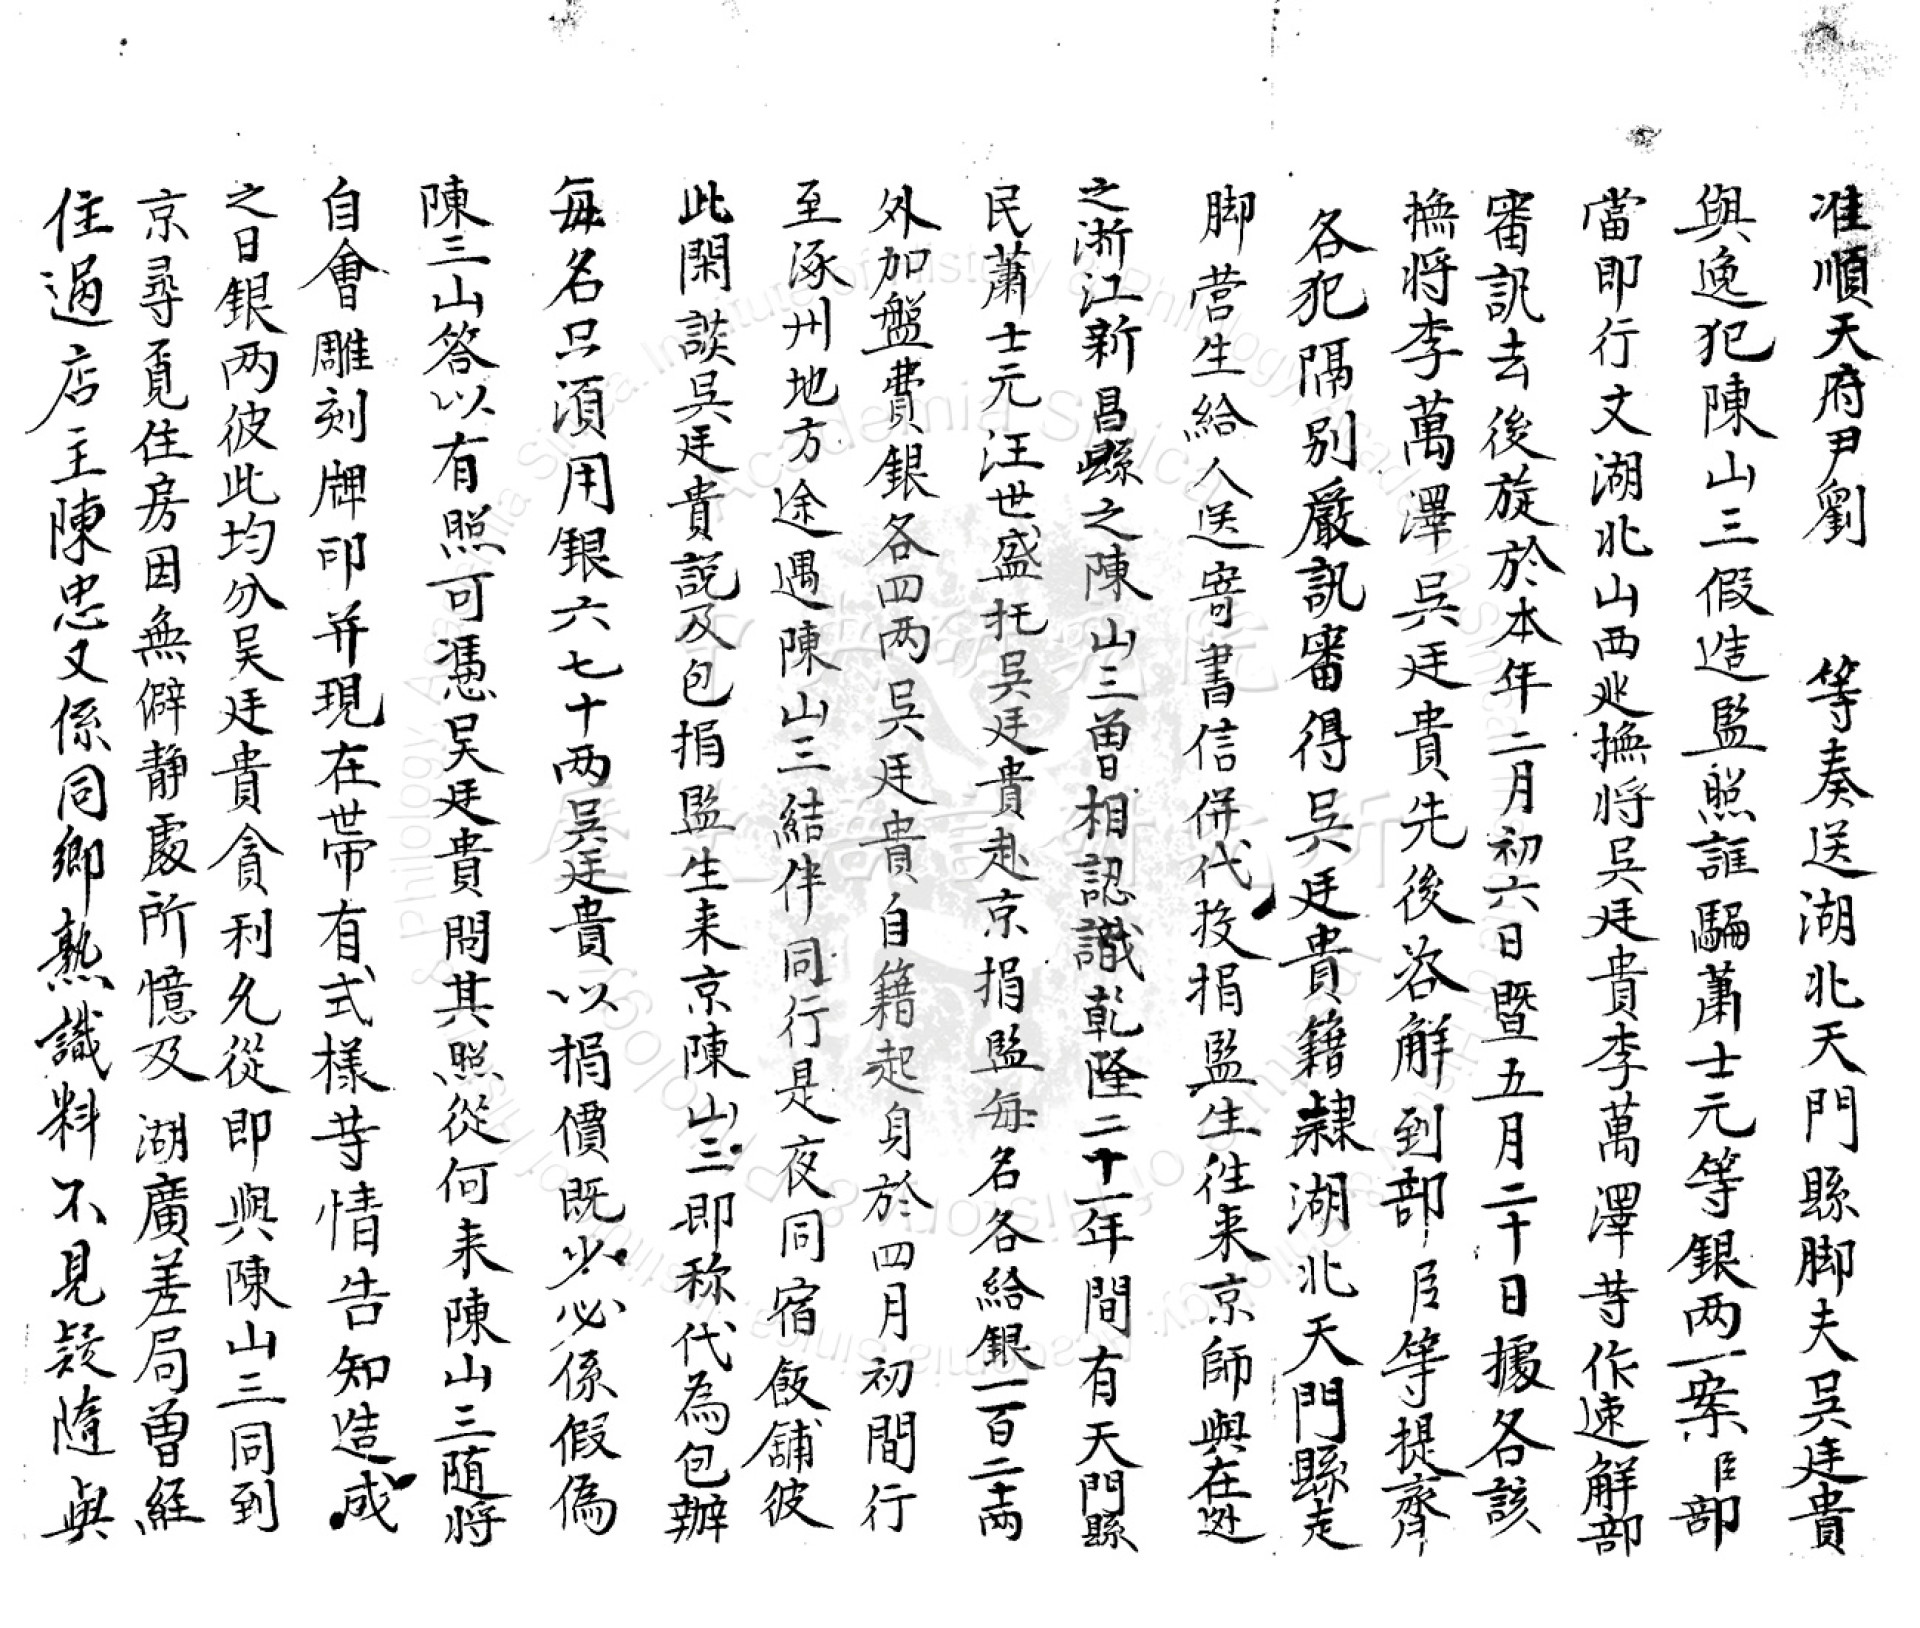 准順天府尹劉　等奏送湖北天門縣脚夫吳廷貴
與逸犯陳山三假造監照誆騙蕭士元等銀两一案臣部
當即行文湖北山西廵撫將吳廷貴李萬澤等作速解部
審訊去後旋於本年二月初六日暨五月二十日據各該
撫將李萬澤吳廷貴先後咨解到部臣等提齊
各犯隔別嚴訊審得吳廷貴籍隸湖北天門縣走
脚营生給人送寄書信併代投捐監生徃来京師與在逃
之浙江新昌縣之陳山三曾相認識乾隆二十一年間有天門縣
民蕭士元汪世盛托吳廷貴赴京捐監每名各給銀一百二十两
外加盤費銀各四两吳廷貴自籍起身於四月初間行
至涿州地方途遇陳山三結伴同行是夜同宿飯舖彼
此閑談吳廷貴説及包捐監生来京陳山三即称代為包辦
每名只須用銀六七十两吳廷貴以捐價既少必係假偽
陳三山答以有照可憑吳廷貴問其照從何来陳山三随將
自會雕刻牌印并現在带有式樣等情告知造成
之日銀两彼此均分吴廷貴貪利允從即與陳山三同到
京尋覔住房因無僻静處所憶及湖廣差局曾經
住過店主陳忠又係同鄉熟識料不見疑隨與
Academia Sinica
Institute of History & Philology
中央研究院
歷史語言研究所